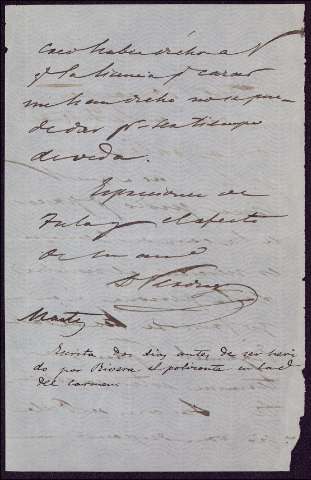 Creo haber dicho a V
y la licencia p. cazar
me han dicho no se pue-
de dar pr. ser tiempo
de veda.
Expresiones de
Tula y el afecto
de su amo
Martes
Escrita dos dias antes de ser heri
do por Rivera el polizonte en la cl.
del Carmen